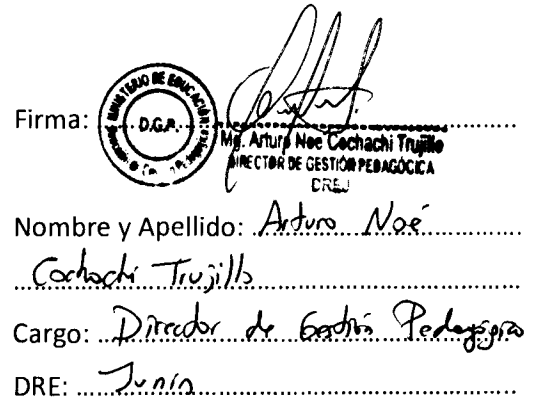 MINISTERIO DE EDUCACIÓN
D.G.P.
Firma:
Mg. Arturo Noe Cochachi Trujillo
DIRECTOR DE GESTIÓN PEDAGÓGICA
DREJ
Nombre y Apellido: Arturo Noé
Cochachi Trujillo
Cargo: Director de Gestión Pedagógica
DRE: Junín